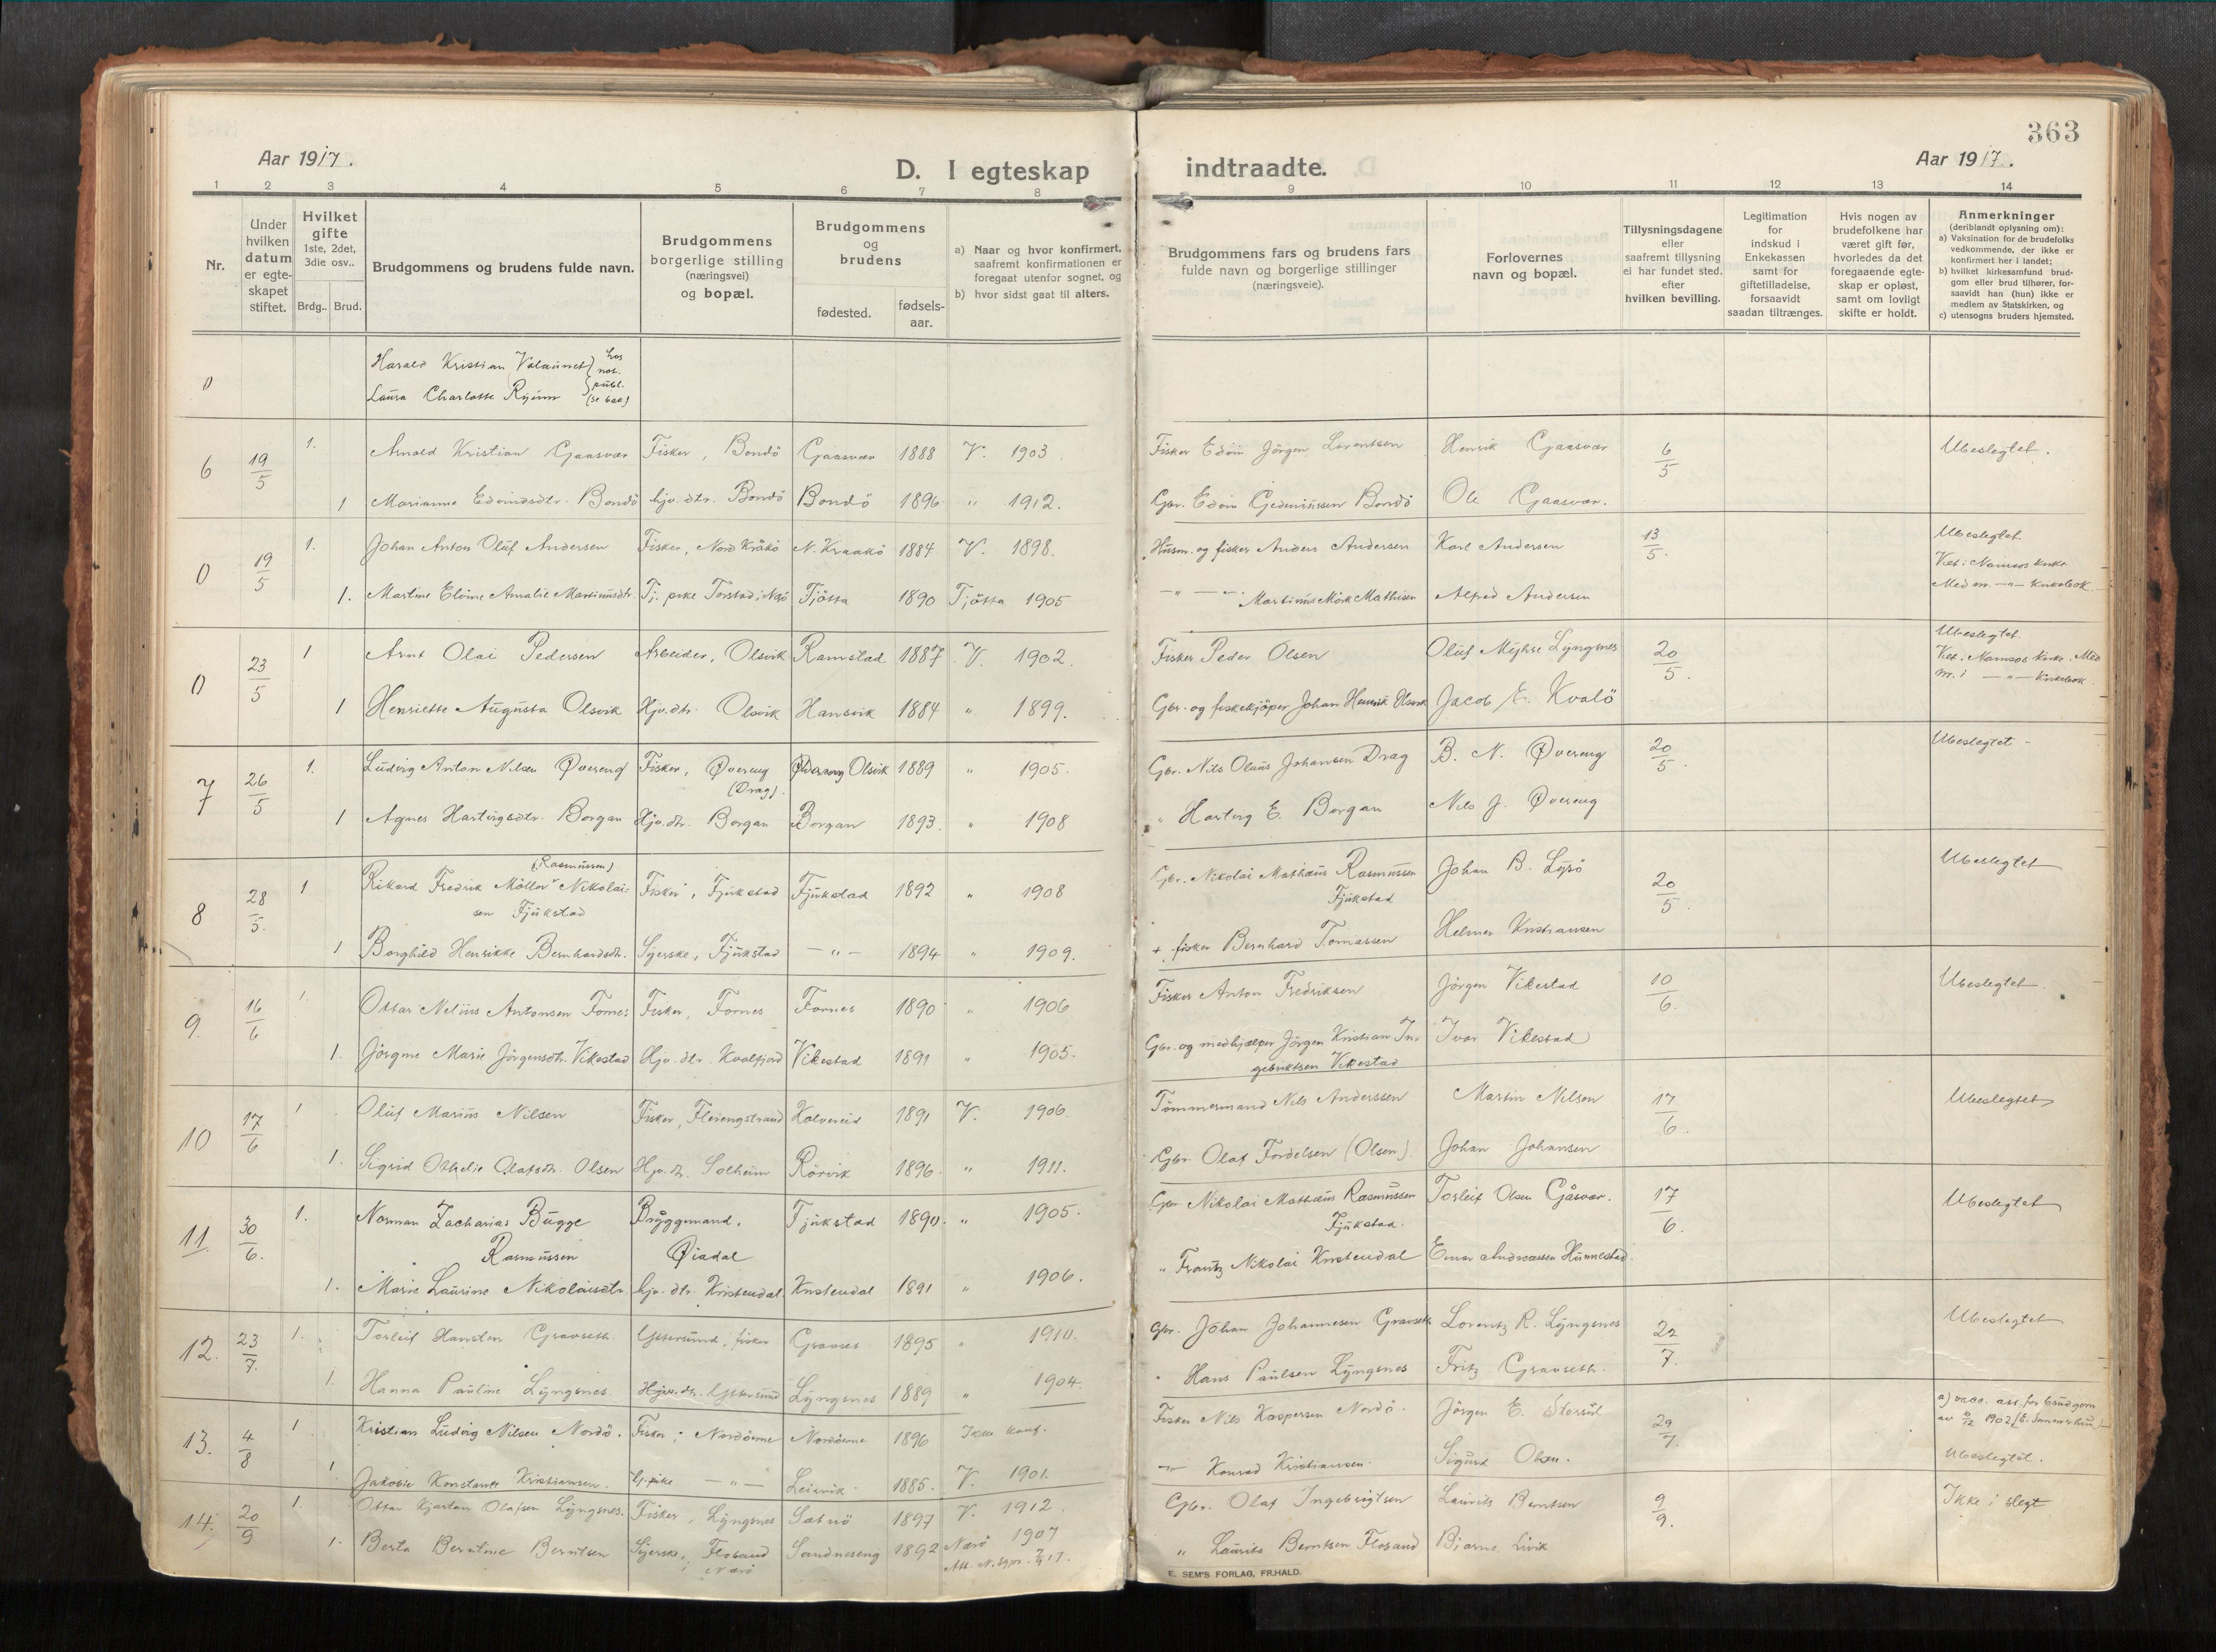 363
Aar 1917.
D. I egteskap indtraadte.
Aar 1917.
1 2 3 4 5 6 7 8 9 10 11 12 13 14
Nr.
Under hvilken datum er egteskapet stiftet.
Hvilket gifte 1ste, 2det, 3die osv..
Brdg.. Brud.
Brudgommens og brudens fulde navn.
Brudgommens borgerlige stilling (næringsvei) og bopæl.
Brudgommens og brudens
fødested.
fødsels-aar.
a) Naar og hvor konfirmert, saafremt konfirmationen er foregaat utenfor sognet, og
b) hvor sidst gaat til alters.
Brudgommens fars og brudens fars fulde navn og borgerlige stillinger (næringsveie).
Forlovernes navn og bopæl.
Tillysningsdagene eller saafremt tillysning ei har fundet sted. efter hvilken bevilling.
Legitimation for indskud i Enkekassen samt for giftetilladelse, forsaavidt saadan tiltrænges.
Hvis nogen av brudefolkene har været gift før, hvorledes da det foregaaende egteskap er opløst, samt om lovligt skifte er holdt.
Anmerkninger (deriblandt oplysning om):
a) Vaksination for de brudefolks vedkommende, der ikke er konfirmert her i landet;
b) hvilket kirkesamfund brudgom eller brud tilhører, forsaavidt han (hun) ikke er medlem av Statskirken, og
c) utensogns bruders hjemsted.
0 Harald Kristian Valaunet } hos not.
Laura Charlotte Ryjem } publ. (se bak)
6 19/5 1. Arnold Kristian Gaasvær Fisker, Bondö Gaasvær 1888 V. 1903 Fisker Edvin Jörgen Lorentsen Henrik Gaasvær 6/5 Ubeslegtet.
1 Marianne Edvindsdtr. Bondö hjv. dtr. Bondö Bondö 1896 " 1912. Gbr. Edvin Gedeniussen Bondö Ole Gaasvær.
0 19/5 1. Johan Anton Oluf Andersen Fisker, Nord Kråkö N. Kraakö 1884 V. 1898. Husm. og fisker Anders Andersen Karl Andersen 13/5. Ubeslegtet.
Viet i Namsos kirke
1. Martine Elvine Amalie Martinusdtr. Tj. pike Torstad i Nærö Tjötta 1890 Tjötta 1905 —"— —"— Martinus Mörk Mathisen Alfred Andersen Med nr. —"— kirkebok
0 23/5 1 Arnt Olai Pedersen Arbeider, Olsvik Ramstad 1887 V. 1902. Fisker Peder Olsen Oluf Myhre Lyngsnes 20/5. Ubeslegtet.
Viet i Namsos kirke. Med nr. i —"— kirkebok.
1 Henriette Augusta Olsvik Hjv. dtr. Olsvik Hansvik 1884 " 1899. Gbr. og fiskekjöper Johan Henrik Olsvik Jacob E. Kvalö
7 26/5 1. Ludvig Anton Nilsen Øvereng Fisker, Øvereng (Drag). Olsvik 1889 " 1905. Gbr. Nils Olaus Johansen Drag B. N. Øvereng 20/5. Ubeslegtet -
1 Agnes Hartvigsdtr. Borgan Hjv. dtr. Borgan Borgan 1893. " 1908 " Hartvig E. Borgan Nils J. Øvereng
8 28/5. 1 Rikard Fredrik Möller (Rasmussen) Nikolaisen Fjukstad Fisker, Fjukstad Fjukstad 1892 " 1908 Gbr. Nicolai Mathæus Rasmussen Fjukstad Johan B. Lysö 20/5. Ubeslegtet
1 Borghild Henrikke Bernhardsdtr. Syerske, Fjukstad —"— 1894 " 1909. + fisker Bernhard Tomassen Helmer Kristiansen
9. 16/6 1. Ottar Nelius Antonsen Fornes Fisker, Fornes Fornes 1890 " 1906 Fisker Anton Fredriksen Jörgen Vikestad 10/6. Ubeslegtet.
1. Jörgine Marie Jörgensdtr. Vikestad Hjv. dtr. Kvalfjord Vikestad 1891 " 1905. Gbr. og medhjælper Jörgen Kristian Ingebriktsen Vikestad Ivar Vikestad
10 17/6 1 Oluf Marius Nilsen Fisker, Flerengstrand Kolvereid 1891 V. 1906. Tömmermand Nils Anderssen Martin Nilsen 17/6. Ubeslegtet
1. Sigrid Othelie Olafsdtr. Olsen Hjv. dtr. Solheim Rörvik 1896. " 1911. Gbr. Olaf Fordelsen (Olsen). Johan Johansen
11. 30/6. 1. Norman Zacharias Bugge Rasmussen Bryggemand, Øiadal Fjukstad 1890. " 1905. Gbr. Nikolai Mathæus Rasmussen Fjukstad. Torleif Olsen Gåsvær. 17/6. Ubeslegtet
1. Marie Laurine Nikolaisdtr. hjv. dtr. Kristendal Kristendal 1891 " 1906. " Frantz Nikolai Kristendal Einar Andreassen Hunnestad.
12. 23/7. 1. Torleif Hansten Gravseth. Yttersund, fisker Gravset 1895 " 1910. Gbr. Johan Johannesen Gravseth Lorentz R. Lyngsnes 22/7. Ubeslegtet
1. Hanna Pauline Lyngsnes Hjv. dtr. Yttersund Lyngsnes 1889 " 1904. " Hans Paulsen Lyngsnes Fritz Gravseth.
13. 4/8 1 Kristian Ludvig Nilsen Nordö. Fisker, Nordöerne Nordöerne 1896 Ikke konf. Fisker Nils Kaspersen Nordö. Jörgen E. Storsul 29/7. a) vacc. att. for brudgom
1 Jakobie Konstanse Kristiansen. tj. pike —"— Leirvik 1885. V. 1901. —"— Konrad Kristiansen. Sigurd Olsen. Ubeslegtet.
14. 20/9 1. Ottar Kjartan Olafsen Lyngsnes. Fisker, Lyngsnes Satnö 1897 V. 1912. Gbr. Olaf Ingebrigtsen Laurits Berntsen 9/9. Ikke i slegt
1. Berta Berntine Berntsen Syerske, Flosand Nærö Sandneseng 1892 Nærö 1907 " Laurits Berntsen Flosand Bjarne Livik
E. SEM'S FORLAG, FR.HALD.